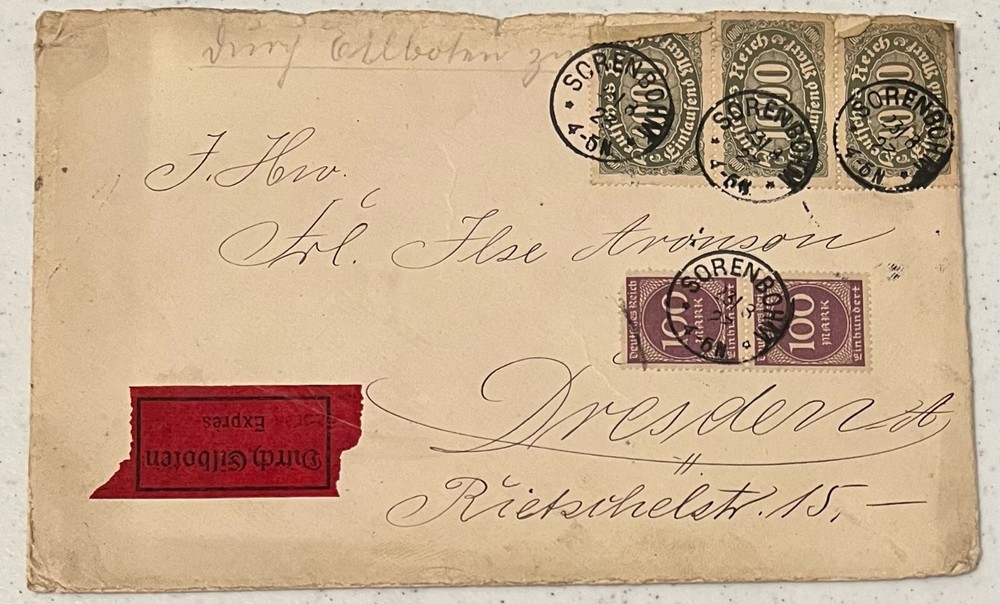 durch Eilboten
SORENBOHM
4-5N
SORENBOHM
4-5N
SORENBOHM
Deutsches Reich
1000
Eintausend Mark
Reich
1000
Eintausend Mark
Reich
Eintausend Mark
Frl. Ilse Aronson
SORENBOHM
Deutsches Reich
100
MARK
Einhundert
Deutsches Reich
100
MARK
Einhundert
Dresden A
Rietschelstr. 15.-
Durch Eilboten
Exprès